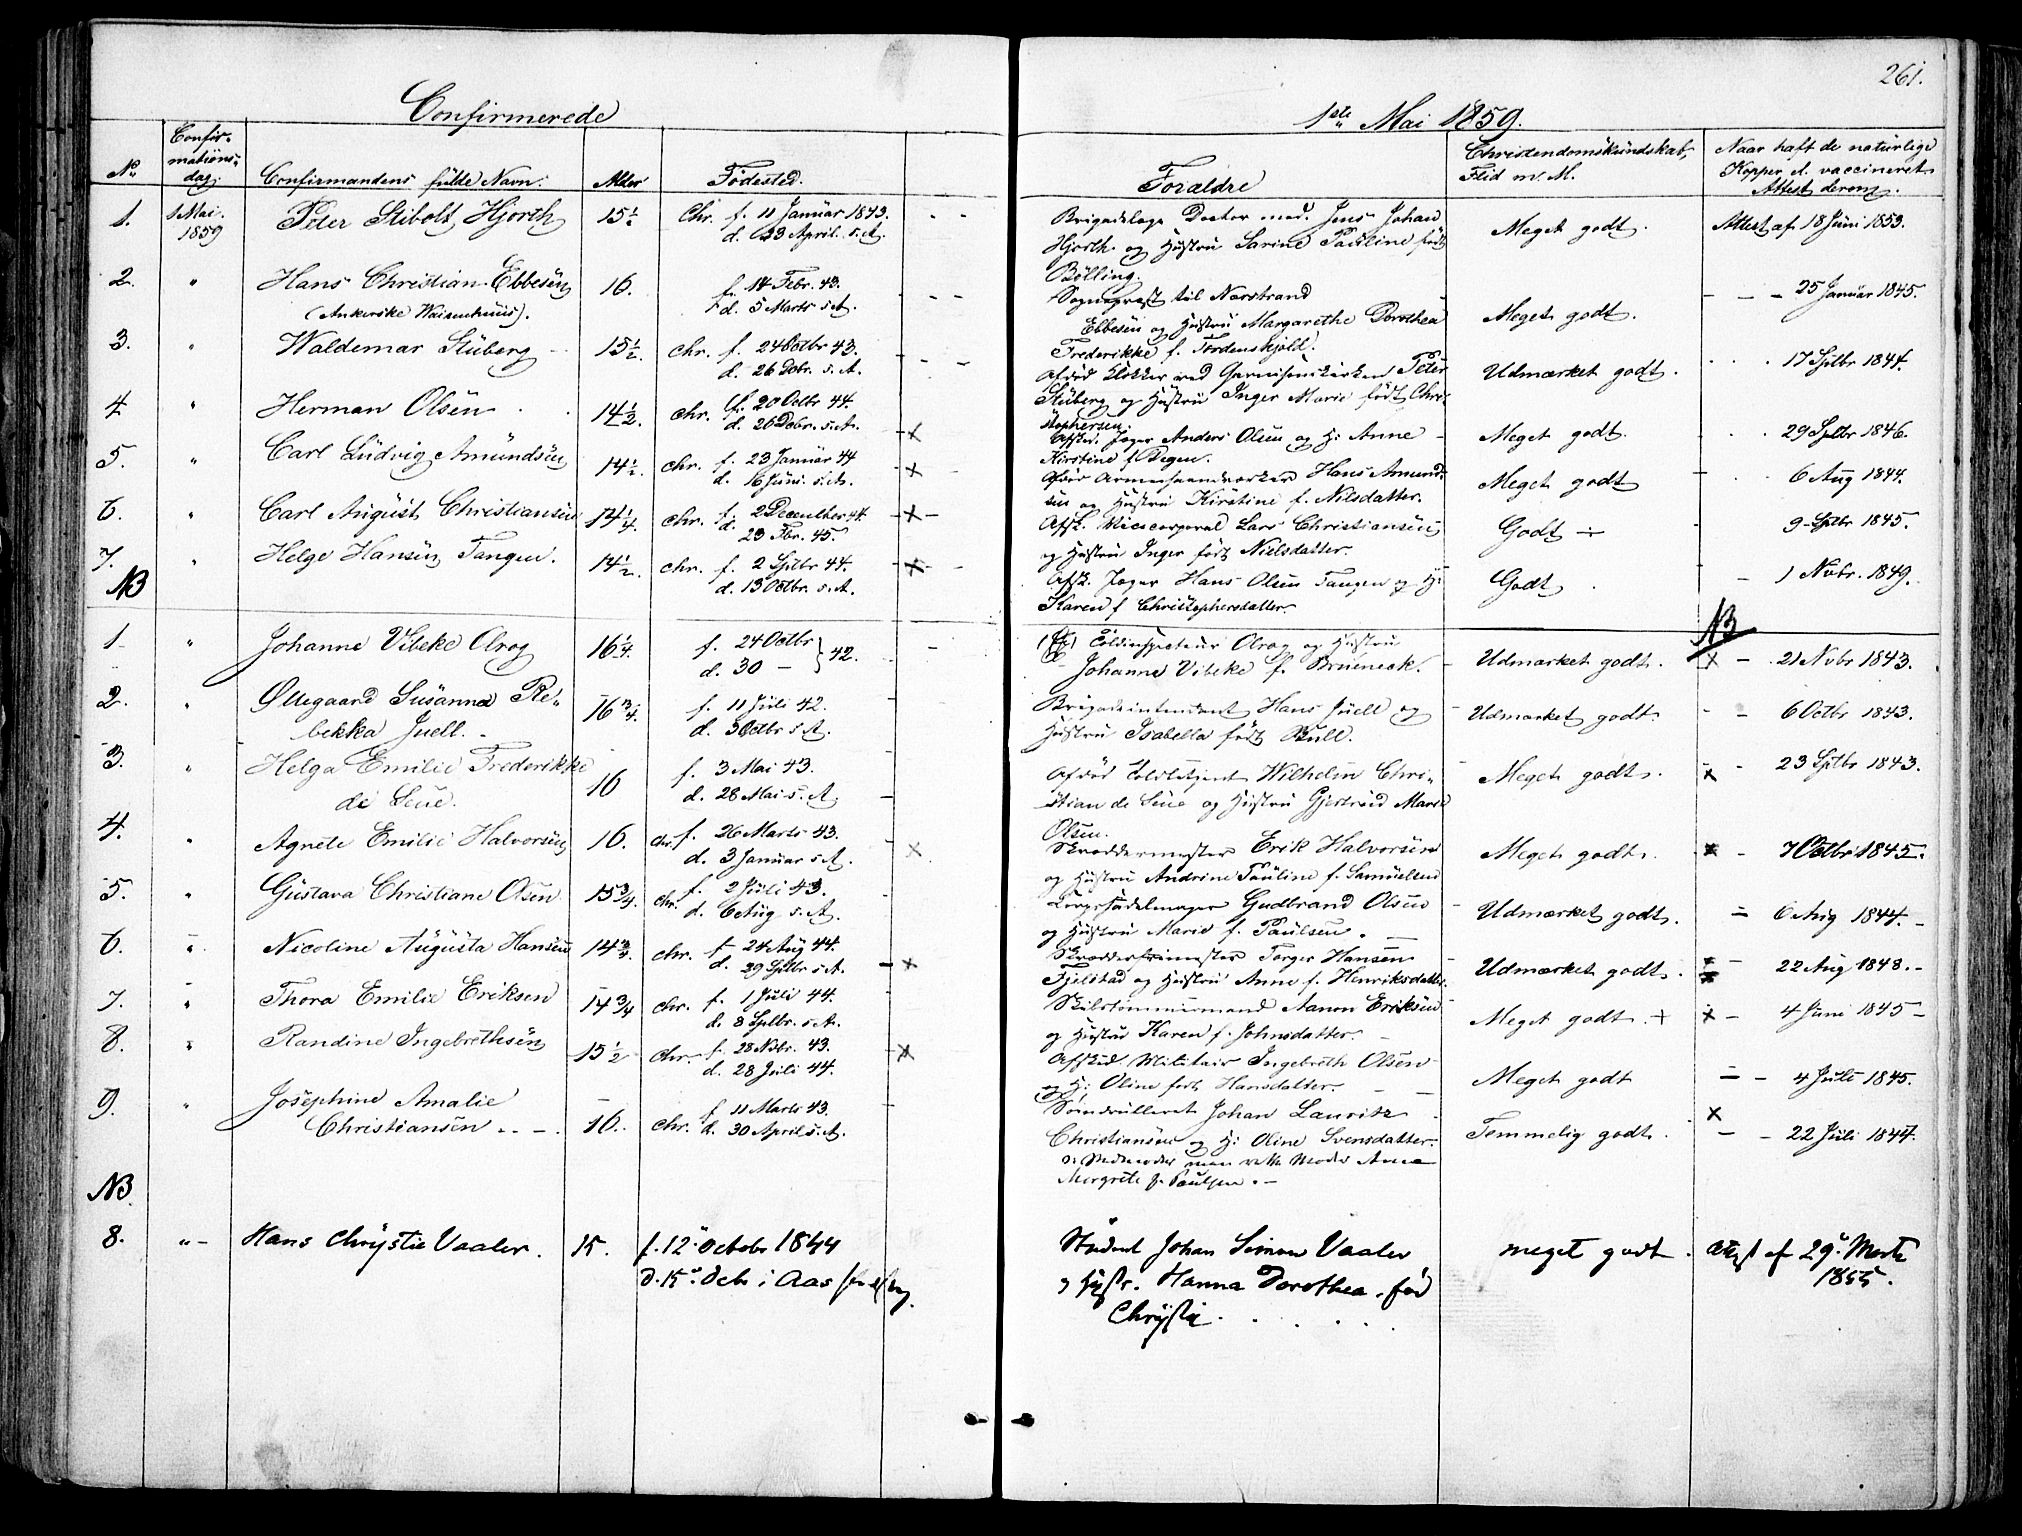 261.
Confirmerede
1ste Mai 1859.
No
Confir-
mations-
dag.
Confirmandens fulde Navn.
Alder
Fødested.
Forældre
Christendomskundskab,
Flid m. M.
Naar haft de naturlige
Kopper el. vaccineret
Attest derom.
1. 1 Mai. 1859 Peter Stibolt Hjorth 15½ Chr. f. 11 Januar 1843.
d. 23 April s. A.
Brigadelæge Doctor med. Jens Johan
Hjorth og Hustru Sarine Pauline født
Bølling.
Meget godt. Attest af 18 Juni 1853.
2. " Hans Christian Ebbesen 16. f. 14 Febr. 43.
(Ankerske Waisenhuus). d. 5 Marts s. A.
Sognepræst til Nærstrand
Ebbesen og Hustru Margarethe Dorothea
Frederikke f. Tordenskjold.
Meget godt. 25 Januar 1845.
3. " Waldemar Stüberg 15½. Chr. f. 24 Octbr 43.
d. 26 Dbr. s. A.
Afdød Klokker ved Garnisonskirken Peter
Stüberg og Hustru Inger Marie født Chri-
stophersen.
Udmærket godt. 17 Sptbr 1844.
4. " Herman Olsen 14½. Chr. f. 20 Octbr 44.
d. 26 Debr. s. A.
Afsked. Jæger Anders Olsen og H: Anne
Kirstine f. Degen.
Meget godt. 29 Sptbr 1846.
5. " Carl Ludvig Amundsen 14½. Chr. f. 23 Januar 44
d. 16 Juni s. A.
Hans Amund-
sen og Hustru Kirstine f. Nilsdatter.
Meget godt 6 Aug 1844.
6. " Carl August Christiansen 14¼. Chr. f. 2 December 44.
d. 23 Fbr. 45.
Afsk. Vicecorporal Lars Christiansen
og Hustru Inger født Nielsdatter.
Godt ÷ 9 Sptbr 1845.
7. " Helge Hansen Tangen. 14½. Chr. f. 2 Sptbr 44.
d. 13 Octbr. s. A.
Afsk. Jæger Hans Olsen Tangen og H:
Karen f Christophersdatter.
Godt 1 Nvbr. 1849.
NB
NB
1 " Johanne Vibeke Olrog 16¼. f. 24 Octbr
d. 30 — } 42.
Toldinspecteur Olrog og Hustru
Johanne Vibeke f. Brüneck.
Udmærket godt. 21 Nvbr 1843.
2. " Øllegaard Susanna Re-
bekka Juell. 16¾. f. 11 Juli 42.
d. 3 Octbr s. A.
Brigadeintendant Hans Juell og
Hustru Isabella født Bull.
Udmærket godt. 6 Octbr 1843.
3. " Helga Emilie Frederikke
de Seue. 16 f. 3 Mai 43.
d. 28 Mai s. A.
Afdød Toldbetjent Wilhelm Chri-
stian de Seue og Hustru Gjertrud Marie
Olsen.
Meget godt. 23 Sptbr 1843.
4. " Agnete Emilie Halvorsen 16. Chr. f. 26 Marts 43.
d. 3 Januar s. A.
Skræddermester Erik Halvorsen
og Hustru Andrine Pauline f. Samuelsen
Meget godt. 7 Octbr 1845.
5. " Gustava Christiane Olsen 15¾. Chr. f. 2 Juli 43.
d. 6 Aug s. A.
Gudbrand Olsen
og Hustru Marie f. Paulsen.
Udmærket godt. 6 Aug 1844.
6. " Nicoline Augusta Hansen 14¾. Chr. f. 24 Aug 44.
d. 29 Sptbr s. A.
Torger Hansen
Fjelstad og Hustru Anne f. Henriksdatter.
Udmærket godt. 22 Aug 1848.
7. " Thora Emilie Eriksen 14¾ Chr. f. 1 Juli 44.
d. 8 Sptbr. s. A.
Skibstømmermand Aamon Eriksen
og Hustru Karen f. Johnsdatter.
Meget godt. + 4 Juni 1845
8. " Randine Ingebrethsen 15½ Chr. f. 28 Nvbr. 43.
d. 28 Juli 44.
Afsked. Militair Ingebreth Olsen
og H: Oline født Hansdatter.
Meget godt 4 Juli 1845.
9. " Josephine Amalie
Christiansen 16. Chr. f. 11 Marts 43.
d. 30 April s. A.
Søindrulleret Johan Lauritz
Christiansen og H: Oline Svensdatter.
Stedmoder men rette Moder Anne
Margrete f. Paulsen.
Temmelig godt. 22 Juli 1844.
NB.
8. " Hans Chrystie Vaaler. 15. f. 12. October 1844
d. 15. Debr i Aas
Student Johan Simon Vaaler
og Hustr. Hanna Dorothea, fød
Chrystie.
meget godt. Attest af 29. Marts
1855.